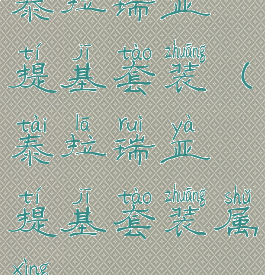 泰拉瑞亚
tí jī tào zhuāng
提基套装（
tài lā ruì yà
泰拉瑞亚
tí jī tào zhuāng shǔ
提基套装属
xìng